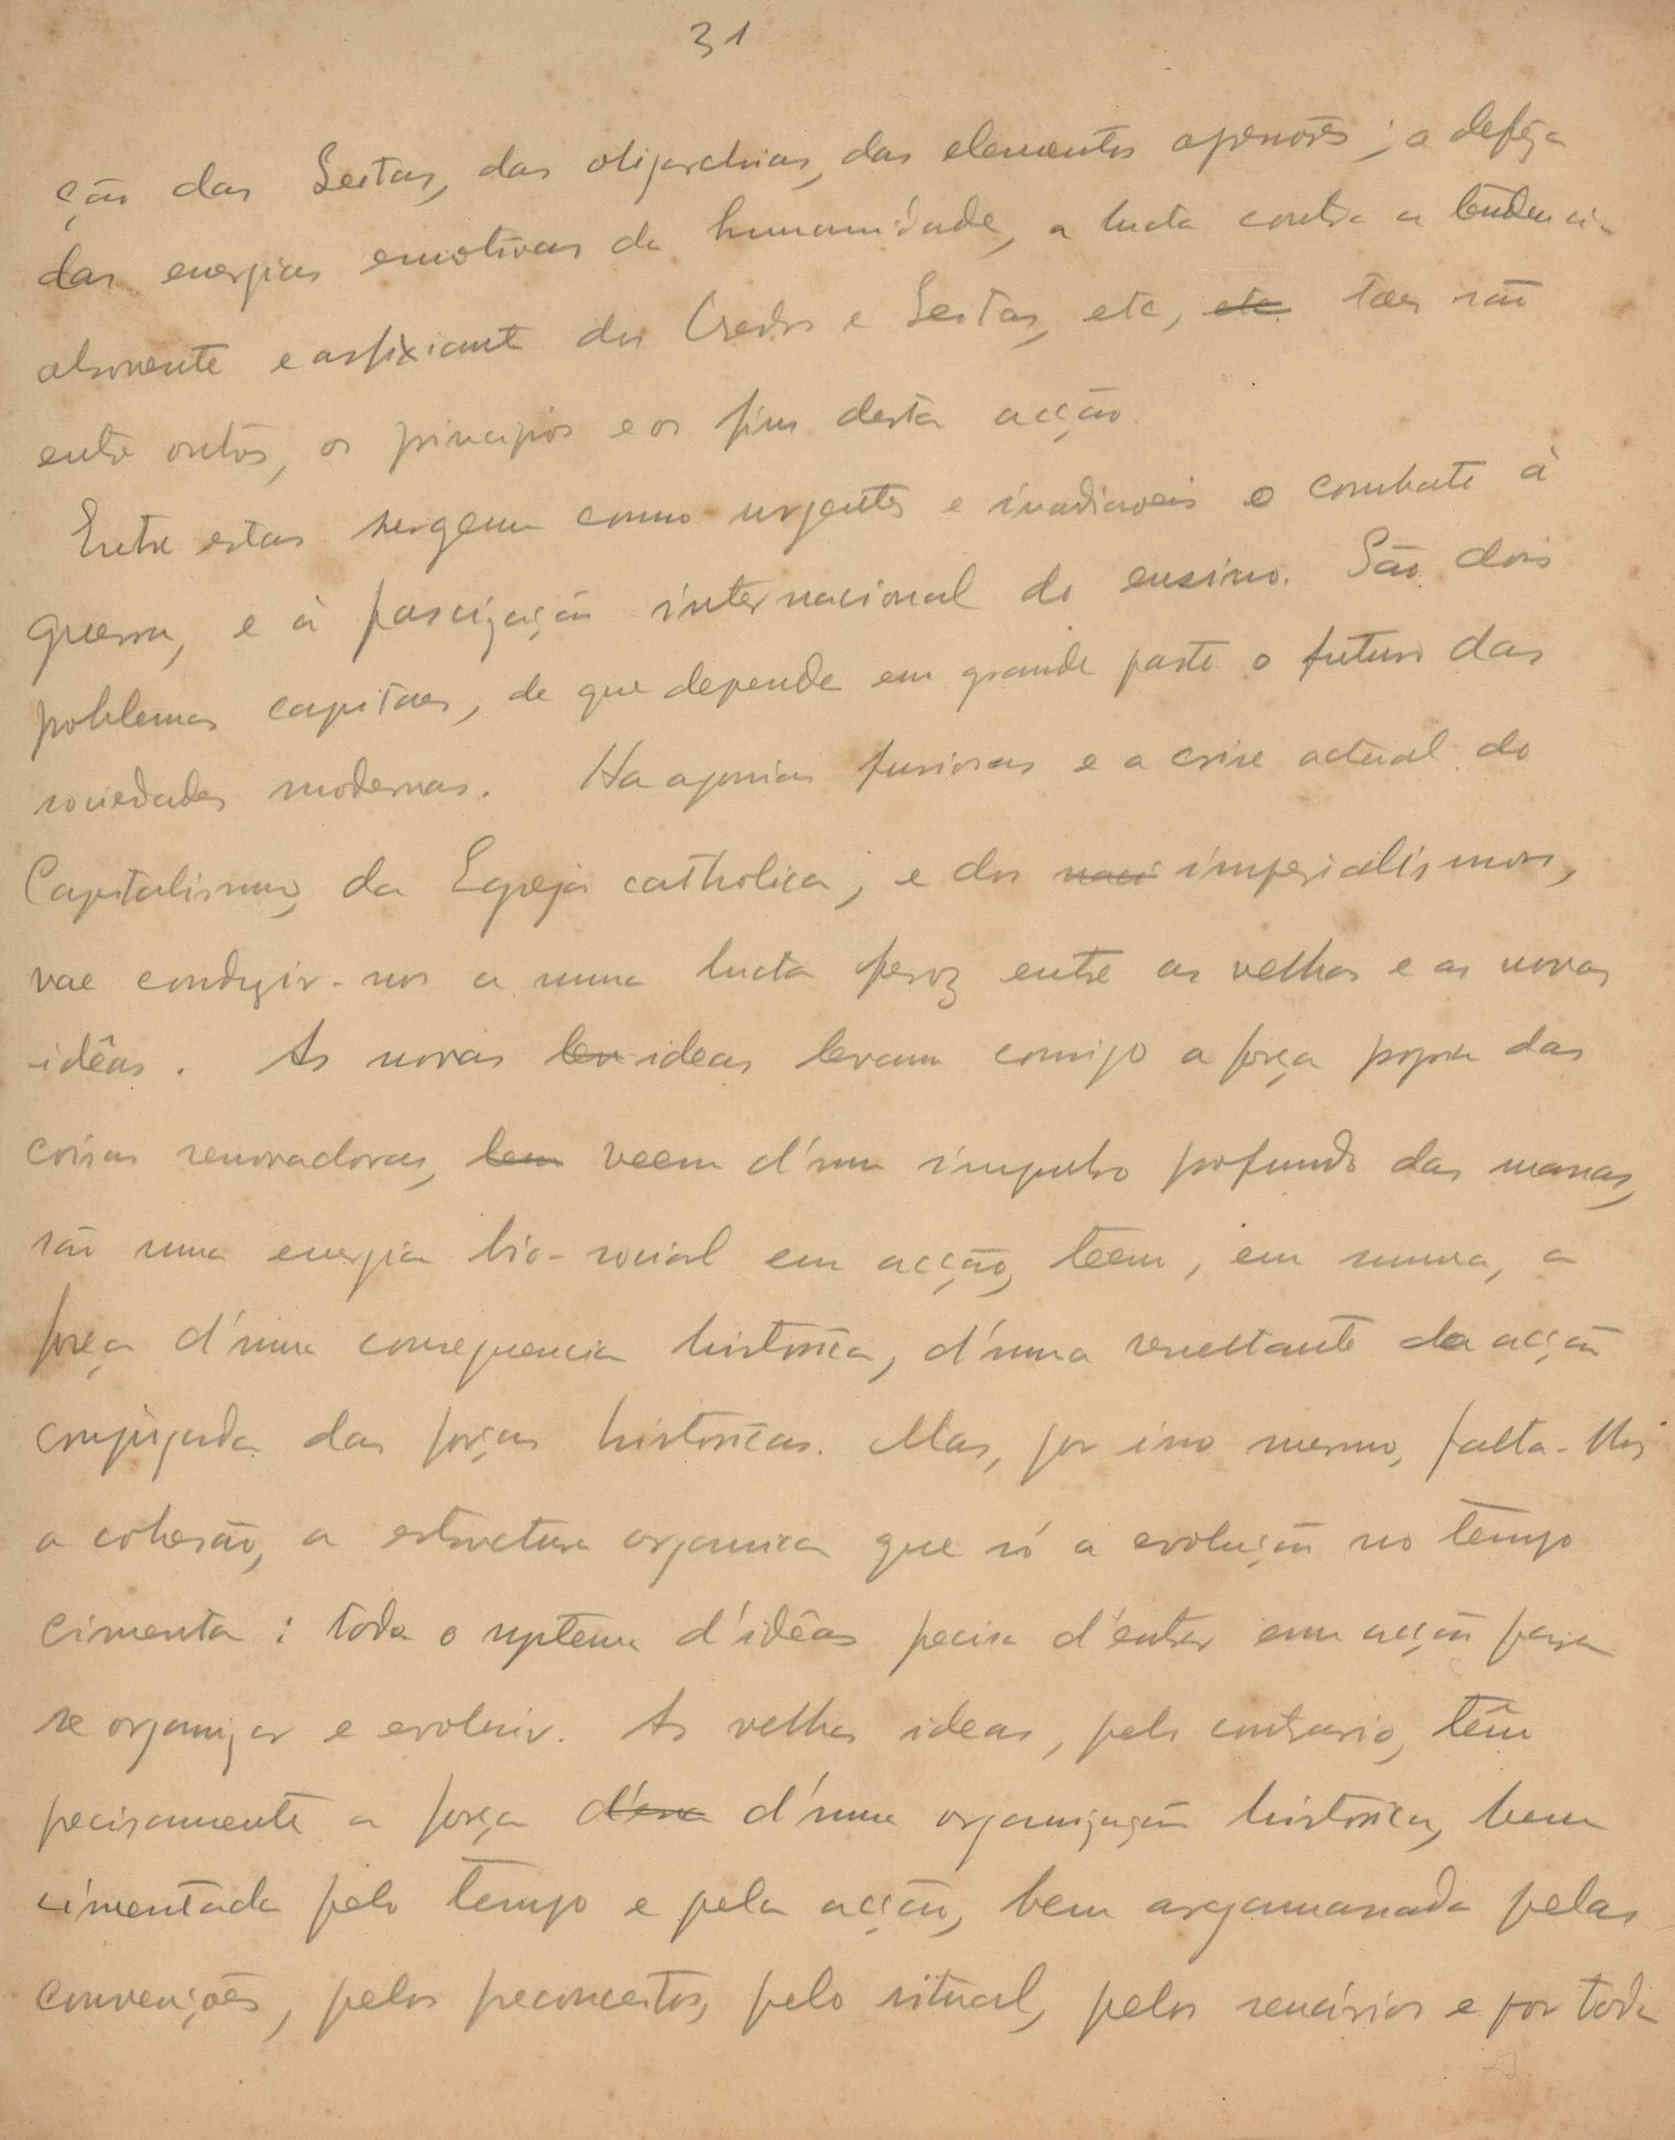 31
ção das Seitas, das oligarchias, dos elementos opressores; a defeza
das energias emotivas da humanidade, a lucta contra a tendencia
absorvente e asfixiante dos Credos e Seitas, etc, etc taes são
entre outros, os principios e os fins desta acção.
Entre estas surgem como urgentes e inadiaveis o combate à
guerra, e à fascização internacional do ensino. São dois
problemas capitaes, de que depende em grande parte o futuro das
sociedades modernas. Ha agonias furiosas e a crise actual do
Capitalismo, da Egreja catholica, e dos naci imperialismos,
vae conduzir-nos a uma lucta feroz entre as velhas e as novas
idêas. As novas lev ideas levam comsigo a força propria das
coisas renovadoras, tem veem d'um impulso profundo das massas,
são uma energia bio-social em acção, teem, em summa, a
força d'uma consequencia historica, d'uma resultante da acção
conjugada das forças historicas. Mas, por isso mesmo, falta-lhes
a cohesão, a estructura organica que só a evolução no tempo
cimenta: todo o systema d'idêas precisa d'entrar em acção para
se organizar e evoluir. As velhas ideas, pelo contrario, têm
precisamente a força d'uma organização historica, bem
cimentada pelo tempo e pela acção, bem argamassada pelas
convenções, pelos preconceitos, pelo ritual, pelos scenários e por toda